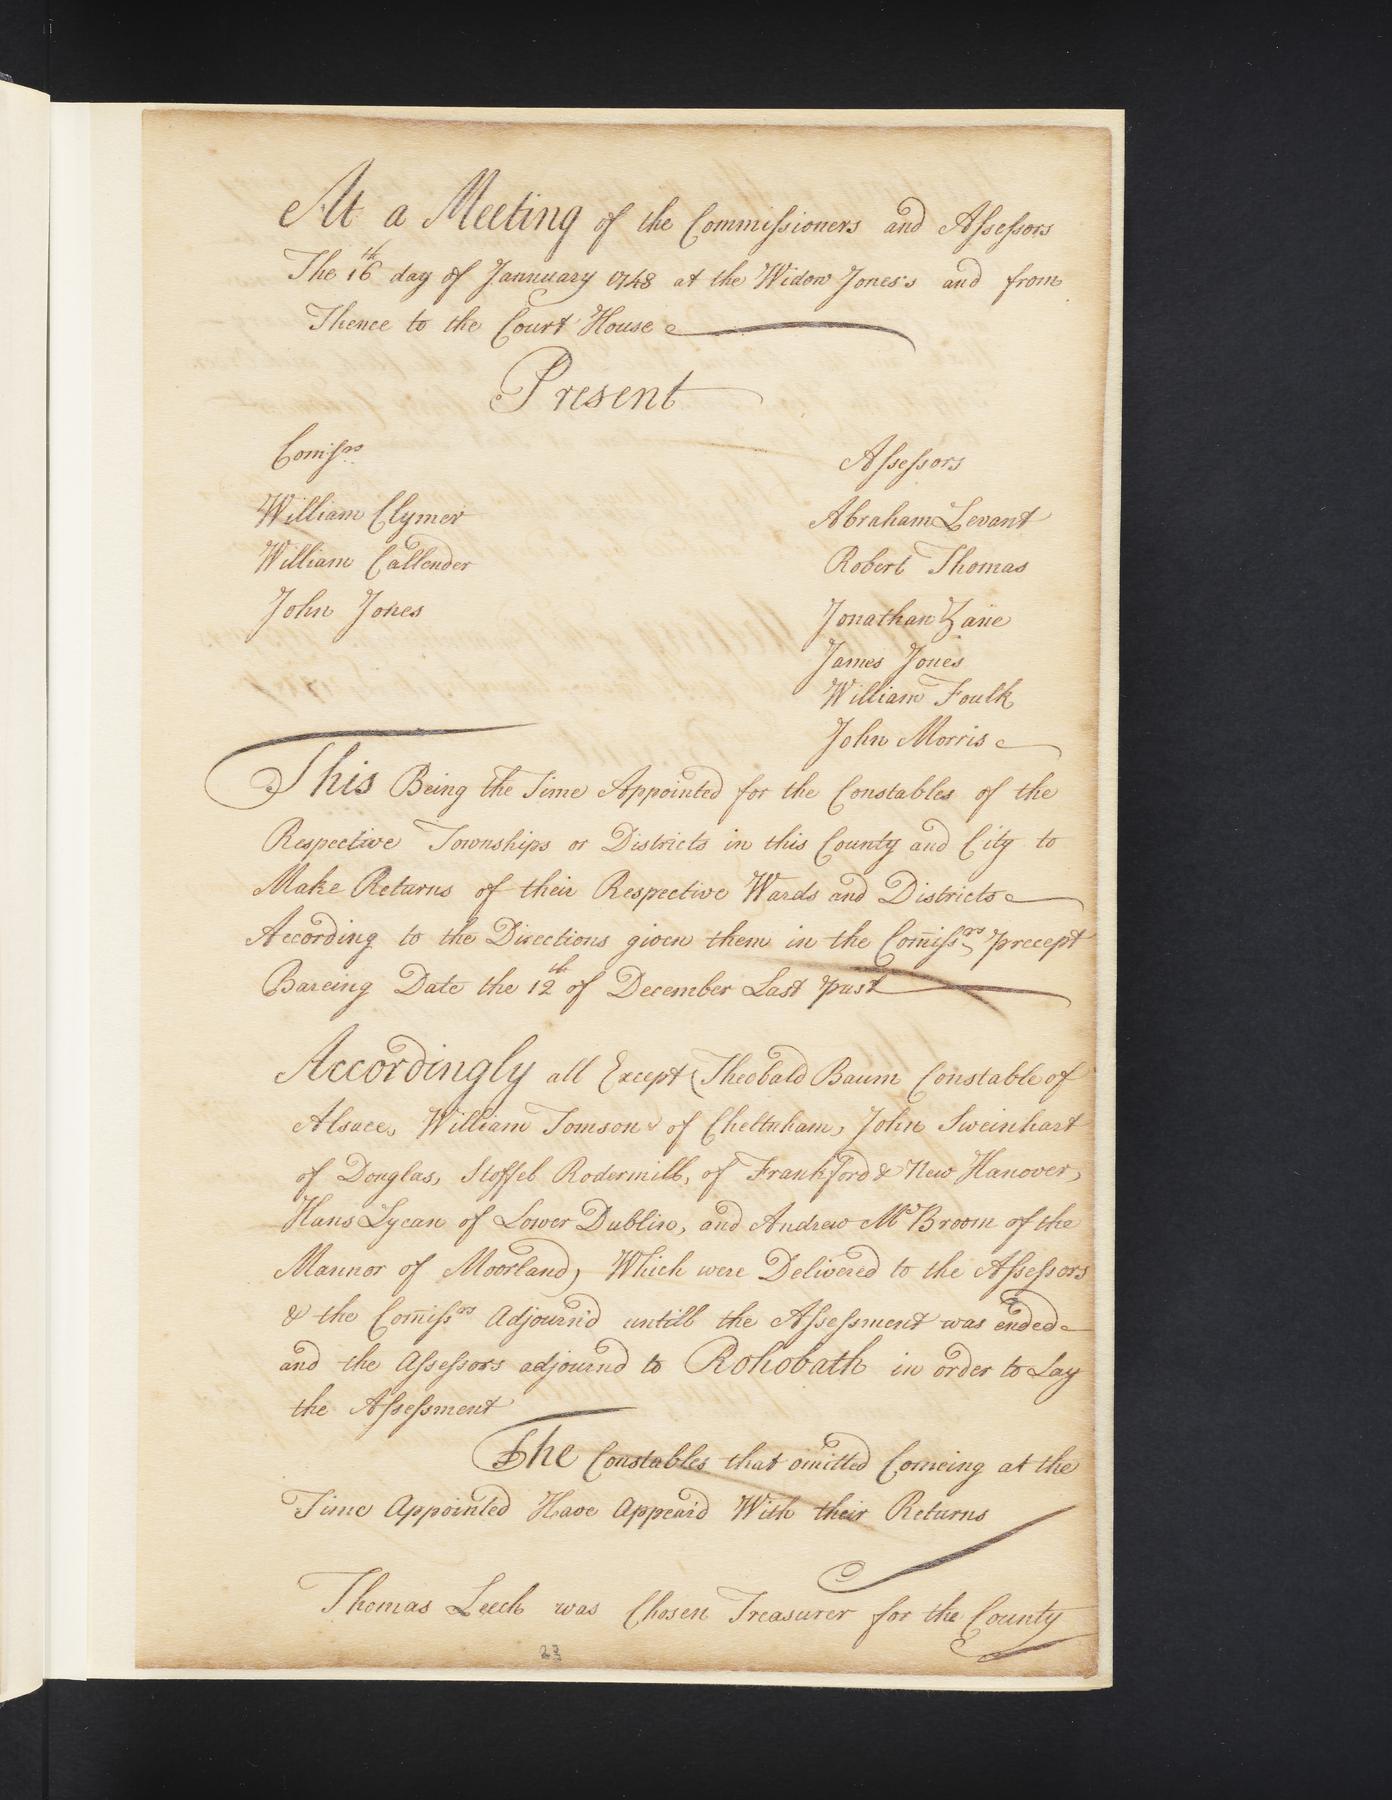 At a Meeting of the Commissioners and Assessors
The 16th day of Jannuary 1748 at the Widow Jones's and from
Thence to the Court House
Present
Comissrs
Assessors
William Clymer
Abraham Levant
William Callender
Robert Thomas
John Jones
Jonathan Zane
James Jones
William Foulk
John Morris
This Being the Time Appointed for the Constables of the
Respective Townships or Districts in this County and City to
Make Returns of their Respective Wards and Districts
According to the Directions given them in the Comissrs precept
Bareing Date the 12th of December Last past
Accordingly all Except (Theobald Baum Constable of
Alsace, William Tomson of Cheltnham, John Sweinhart
of Douglas, Stoffel Rodermill, of Frankford & New Hanover,
Hans Lycan of Lower Dublin, and Andrew McBroom of the
Mannor of Moorland) Which were Delivered to the Assessors
& the Comissrs adjourn'd untill the Assessment was ended
and the Assessors adjournd to Rohobath in order to Lay
the Assessment
The Constables that omitted Comeing at the
Time Appointed Have Appear'd With their Returns
Thomas Leech was Chosen Treasurer for the County
23